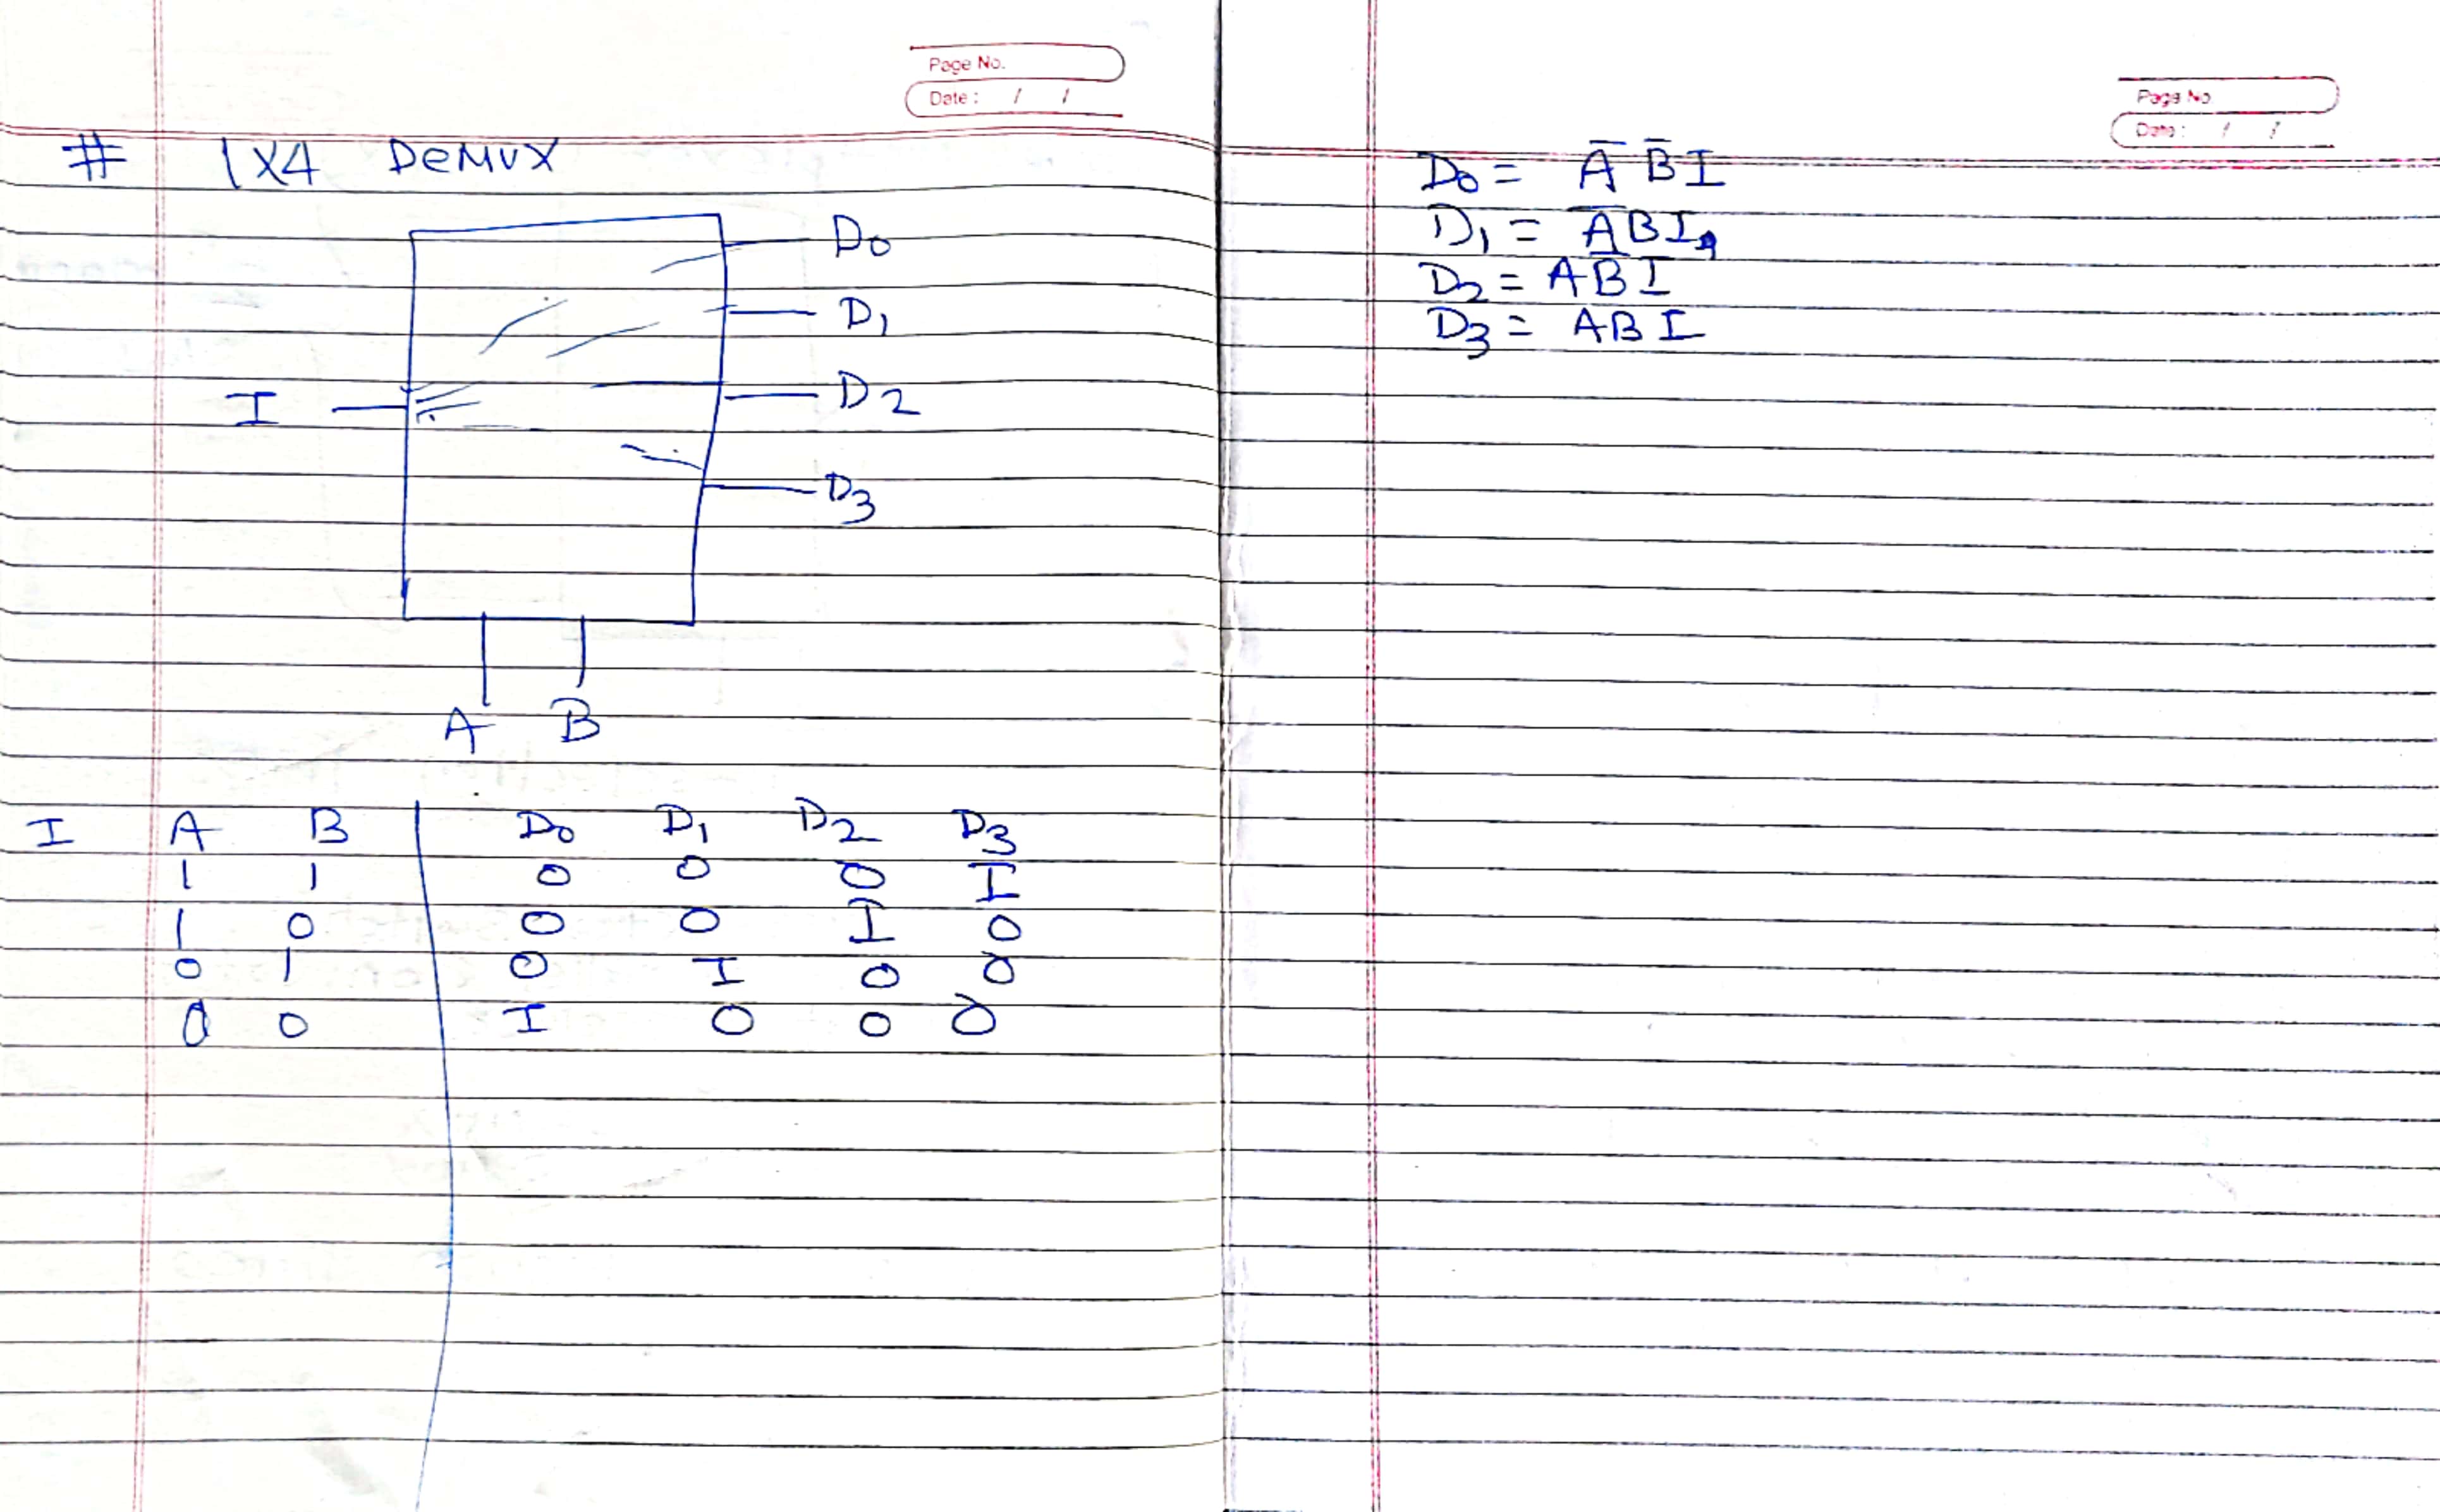 Page No.
Date : / /
# 1X4 DeMUX
D0
D1
I
D2
D3
A B
I A B D0 D1 D2 D3
1 1 0 0 0 I
1 0 0 0 I 0
0 1 0 I 0 0
0 0 I 0 0 0
Page No
Date : / /
D0 = A̅ B̅ I
D1 = A̅ B I
D2 = A B̅ I
D3 = A B I